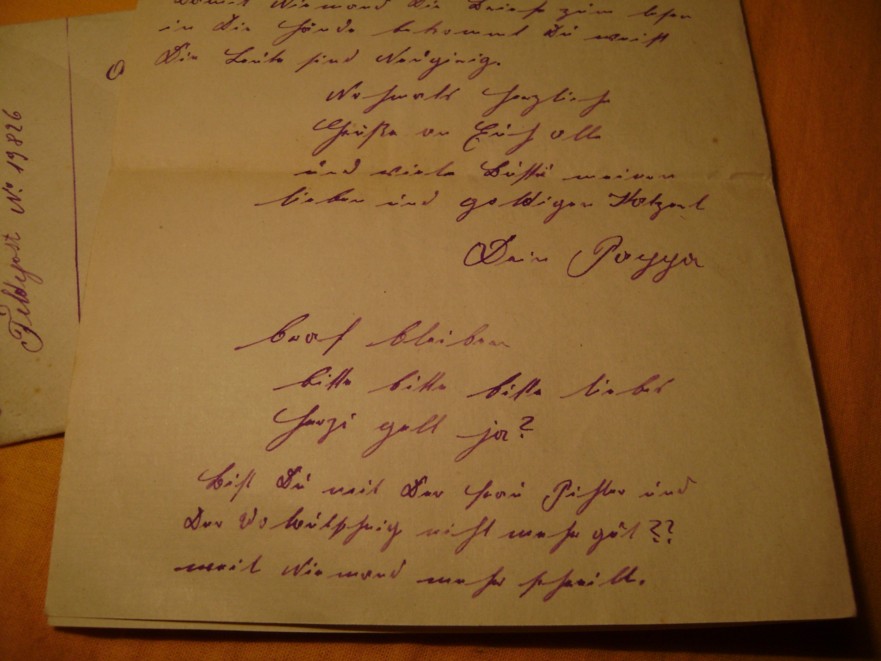 damit Niemand die Briefe zum lesen
in die Hände bekommt Du weist
die Leute sind Neugirig.
Nochmals herzliche
Grüße an Euch alle
und viele Bussi meinen
lieben und goldigen
Dein Pappa
brav bleiben
bitte bitte bitte liebes
Herzi gell ja?
bist Du mit der Frau Pichler und
der nicht mehr gut??
weil Niemand mehr schreibt.
Feldpost No. 19826